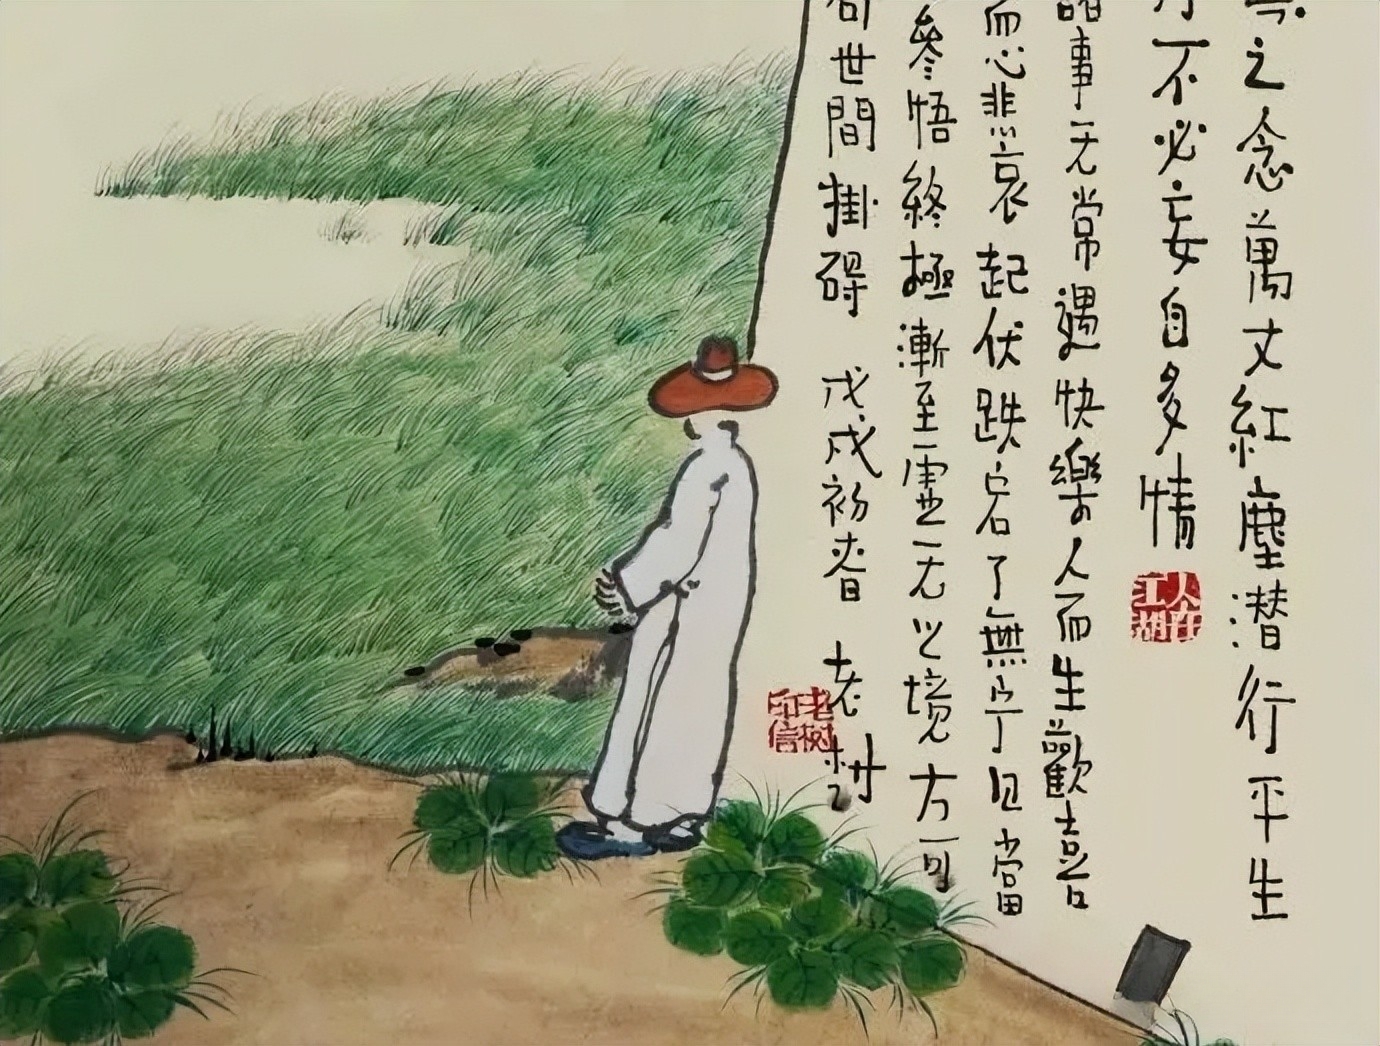 之念萬丈紅塵潜行平生
不必妄自多情
人在江湖
諸事无常遇快樂人而生歡喜
而心悲哀起伏跌宕了無宁日當
參悟終極漸至虚无之境方可
世間掛碍 戊戌初春 老树
老树印信